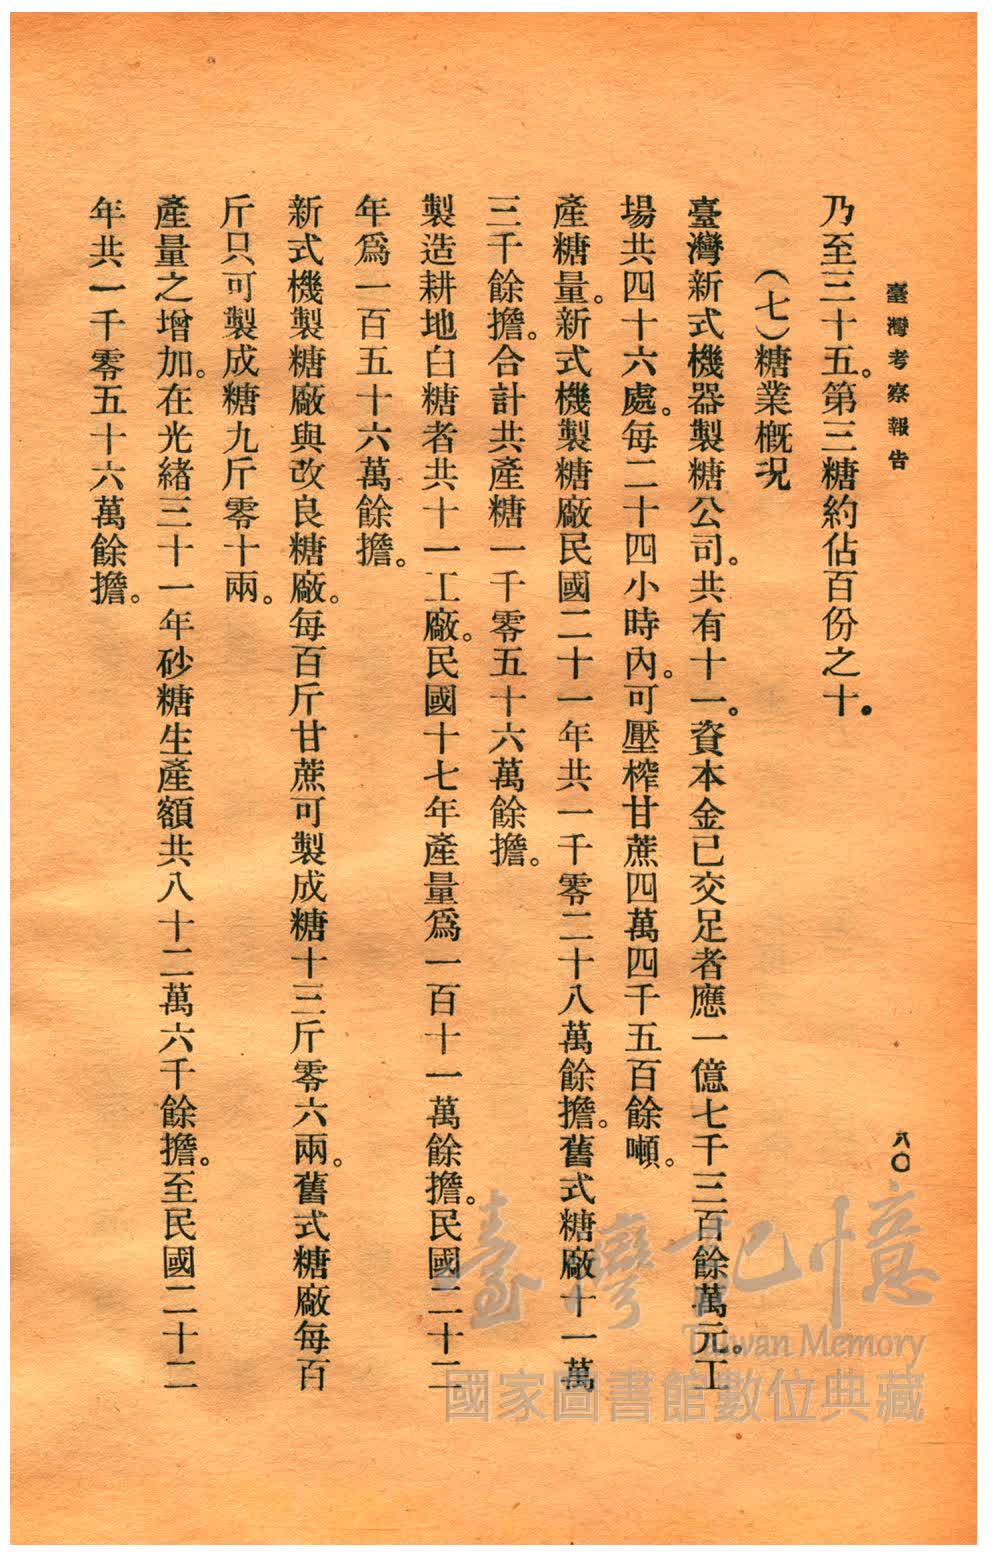 臺灣考察報告
八〇
乃至三十五。第三糖約佔百份之十。
(七)糖業概況
臺灣新式機器製糖公司。共有十一。資本金已交足者應一億七千三百餘萬元。工
場共四十六處。每二十四小時內。可壓榨甘蔗四萬四千五百餘噸。
產糖量。新式機製糖廠民國二十一年共一千零二十八萬餘擔。舊式糖廠十一萬
三千餘擔。合計共產糖一千零五十六萬餘擔。
製造耕地白糖者共十一工廠。民國十七年產量爲一百十一萬餘擔。民國二十二
年爲一百五十六萬餘擔。
新式機製糖廠與改良糖廠。每百斤甘蔗可製成糖十三斤零六兩。舊式糖廠每百
斤只可製成糖九斤零十兩。
產量之增加。在光緒三十一年砂糖生產額共八十二萬六千餘擔。至民國二十二
年共一千零五十六萬餘擔。
臺灣記憶
Taiwan Memory
國家圖書館數位典藏